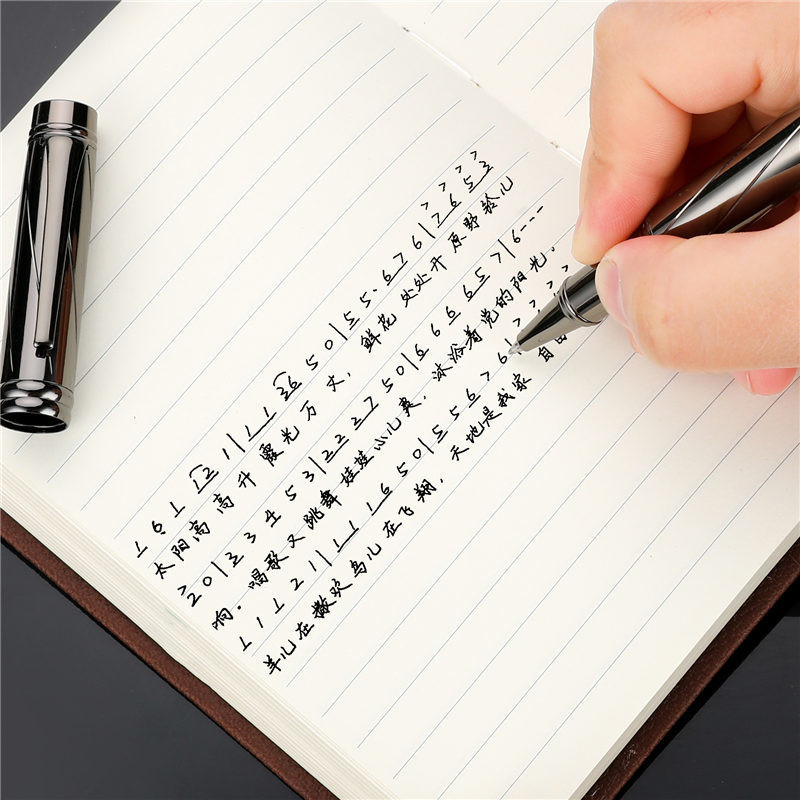 1 6 1 1 2 1 | 1 1 36 5 0 | 5 5. 6 7 6 | 7 6 5 3
太阳高 高升 霞光万丈, 鲜花 处处开 原野铃儿
2 0 | 2 3 4 5 3 | 2 2 2 7 5 0 | 6 6 6 6 5 7 | 6 - - -
响. 唱歌又跳舞 娃娃心儿爽, 沐浴着党的阳光.
1 1 1 2 1 | 1 1 1 6 5 0 | 5 5 6 7 6
羊儿在撒欢鸟儿在飞翔, 天地是我家 自由